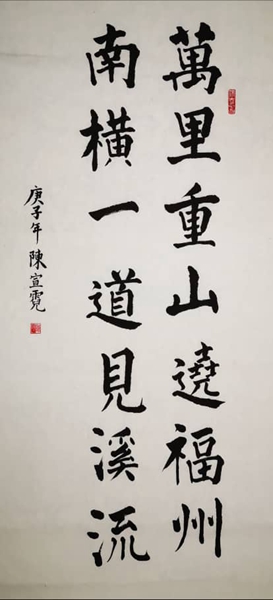 萬里重山遶福州
南橫一道見溪流
庚子年陳宣霓